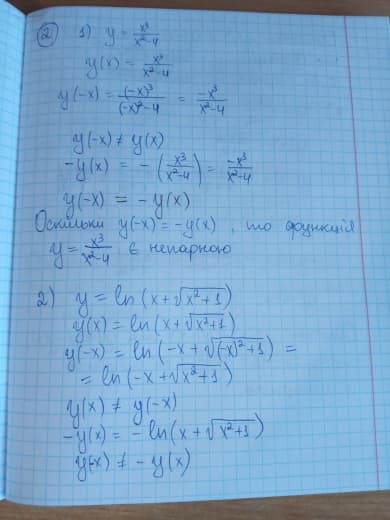 2 1). y = x³/(x²-4)
y(x) = x³/(x²-4)
y(-x) = (-x)³/((-x)²-4) = -x³/(x²-4)
y(-x) ≠ y(x)
-y(x) = -(x³/(x²-4)) = -x³/(x²-4)
y(-x) = -y(x)
Оскільки y(-x) = -y(x), то функція
y = x³/(x²-4) є непарною
2) y = ln(x+√(x²+1))
y(x) = ln(x+√(x²+1))
y(-x) = ln(-x+√((-x)²+1)) =
= ln(-x+√(x²+1))
y(x) ≠ y(-x)
-y(x) = -ln(x+√(x²+1))
y(-x) ≠ -y(x)